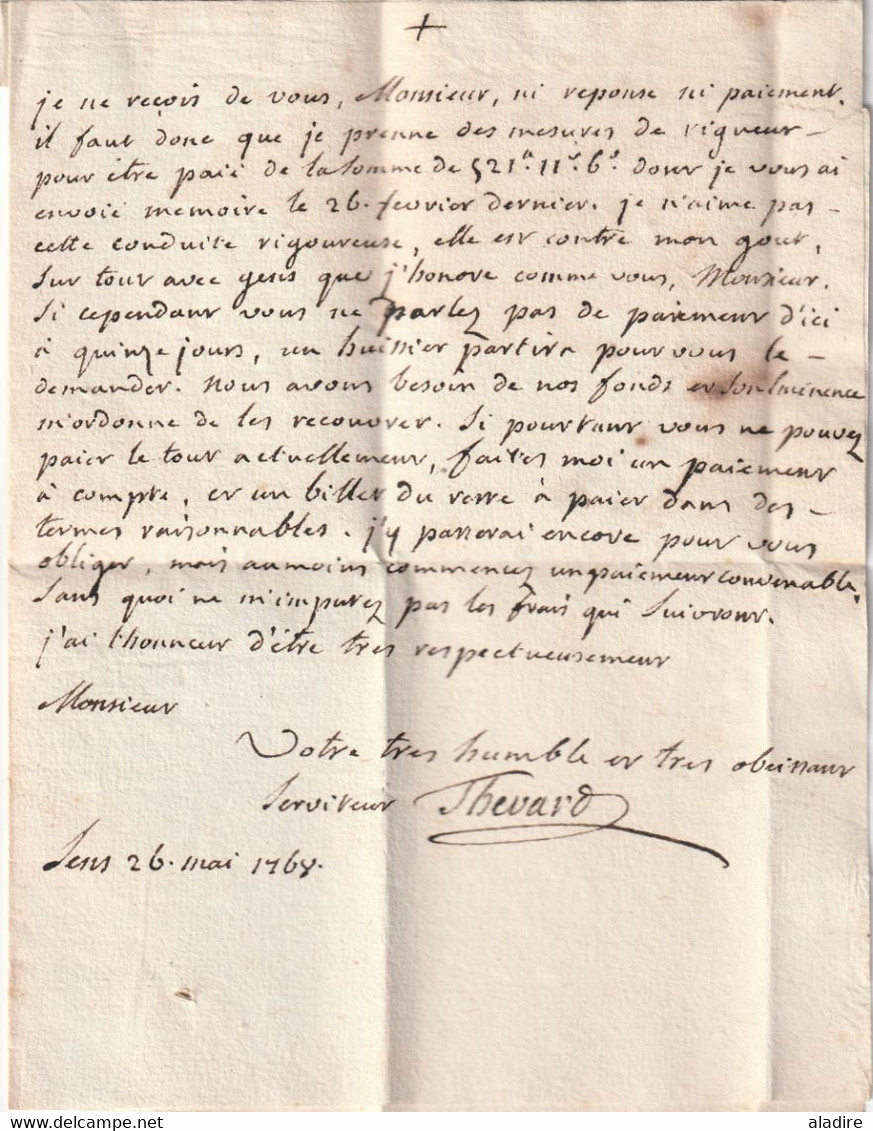 +
je ne reçois de vous, Monsieur, ni reponse ni paiement.
il faut donc que je prenne des mesures de rigueur
pour être paié de la somme de 521ᵗᵗ. 11ˢ. 6ᵈ. dont je vous ai
envoié memoire le 26. fevrier dernier. je n'aime pas
cette conduite rigoureuse, elle est contre mon gout,
sur tout avec gens que j'honore comme vous, Monsieur.
Si cependant vous ne parlez pas de paiement d'ici
à quinze jours, un huissier partira pour vous le
demander. Nous avons besoin de nos fonds et Son Eminence
m'ordonne de les recouvrer. Si pourtant vous ne pouvez
paier le tout actuellement, faites moi un paiement
à compte, et un billet du reste à paier dans des
termes raisonnables. j'y passerai encore pour vous
obliger, mais aumoins commencez un paiement convenable,
Sans quoi ne m'imputez pas les frais qui suivront.
j'ai l'honneur d'être tres respectueusement
Monsieur
Votre tres humble et tres obeissant
Serviteur Thevard
Sens 26. mai 1768.
aladire
delcampe.net